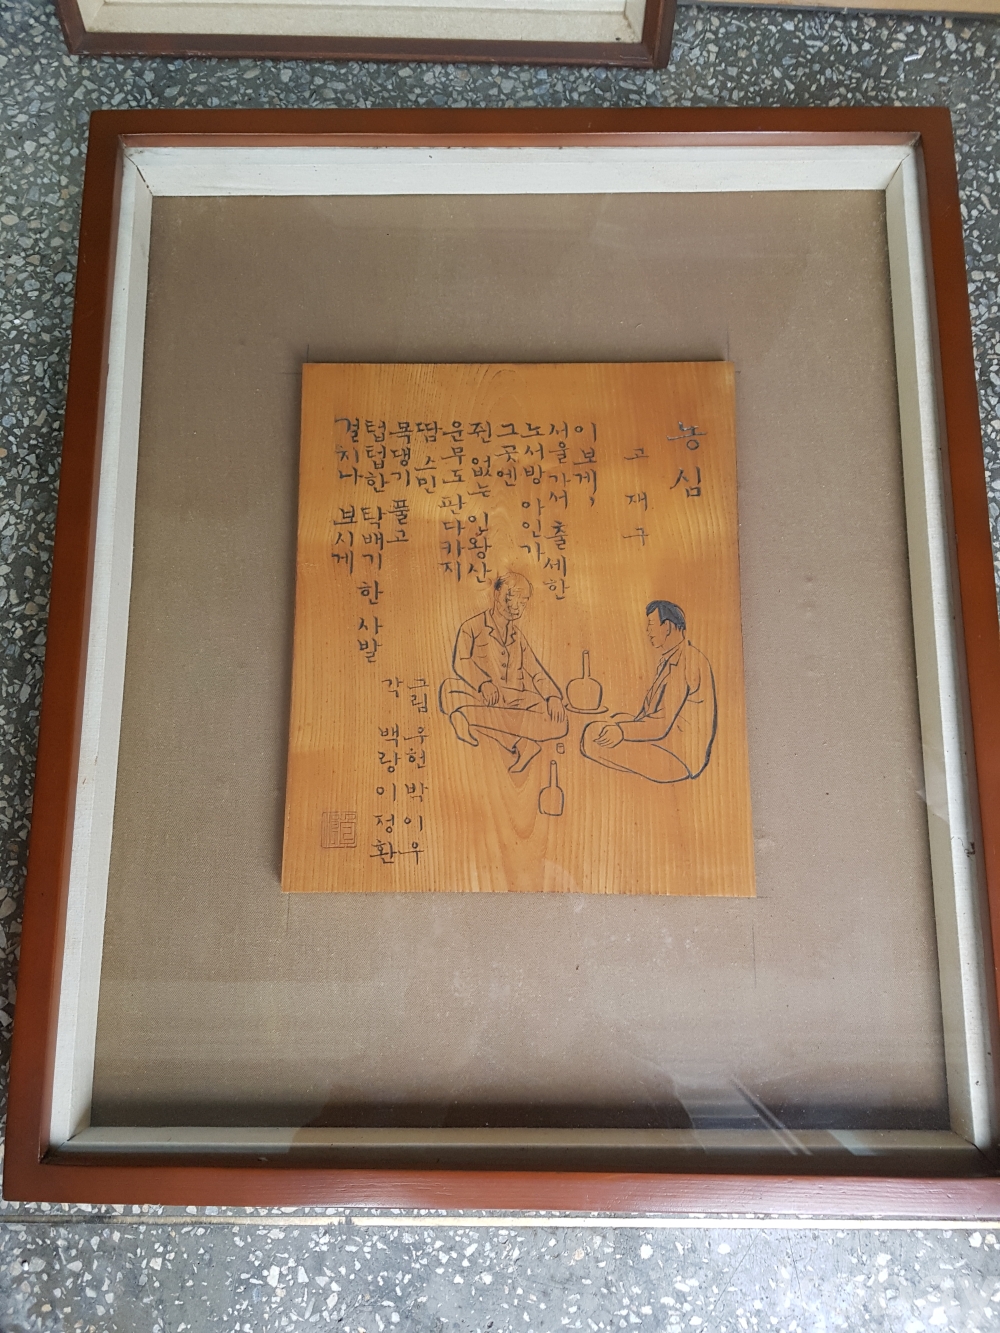 농심
고재구
이 보게,
서울가서 출세한
노서방 아인가
그곳엔
쥔 없는 인왕산
운무도 판다카지
땀 스민
목댕기 풀고
텁텁한 탁배기 한 사발
결치나 보시게
그림 우헌 박이우
각 백랑 이정환